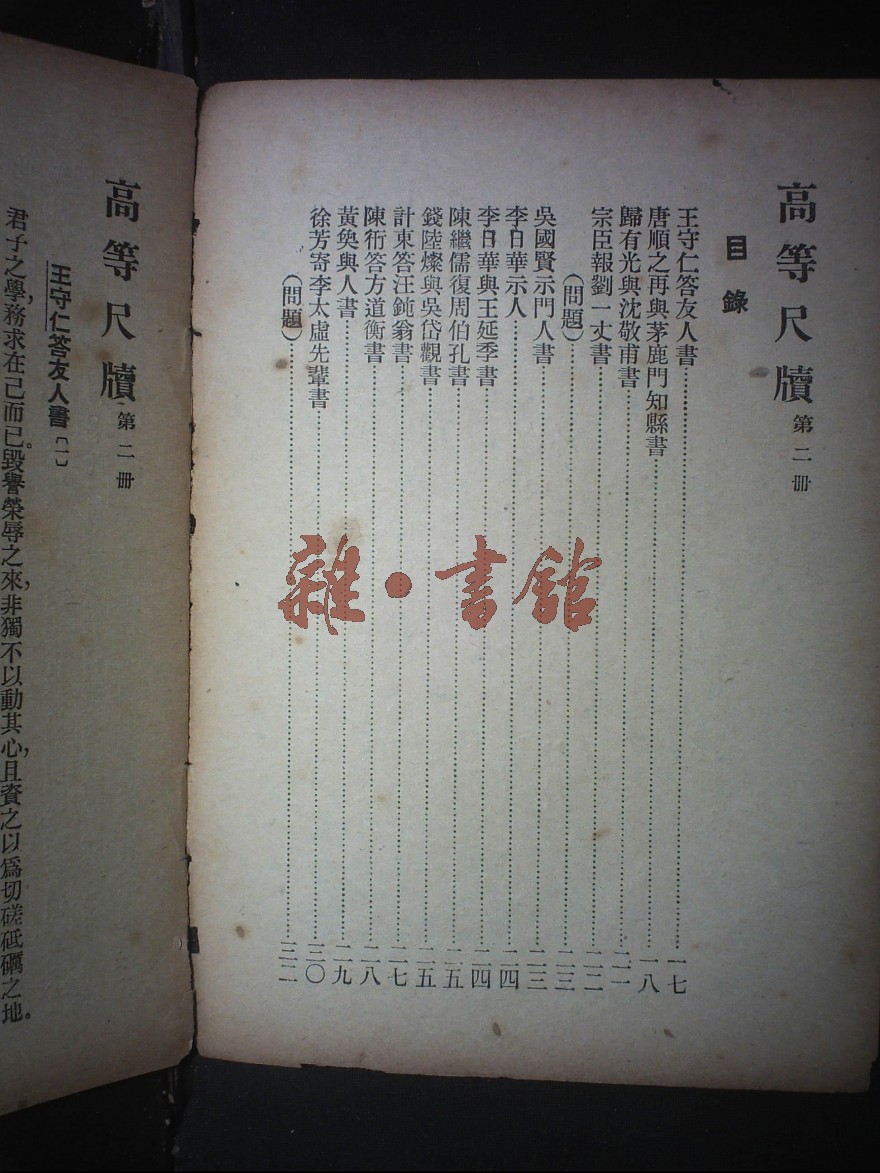 高等尺牘 第二冊
目錄
王守仁答友人書……一七
唐順之再與茅鹿門知縣書……一八
歸有光與沈敬甫書……二一
宗臣報劉一丈書……二二
(問題)……二三
吳國賢示門人書……二三
李日華示人……二四
李日華與王延季書……二四
陳繼儒復周伯孔書……二五
錢陸燦與吳岱觀書……二五
計東答汪鈍翁書……二七
陳衎答方道衡書……二八
黃奐與人書……二九
徐芳寄李太虛先輩書……三〇
(問題)……三二
雜·書館
高等尺牘 第二冊
王守仁答友人書〔一〕
君子之學,務求在己而已。毀譽榮辱之來,非獨不以動其心,且資之以爲切磋砥礪之地。